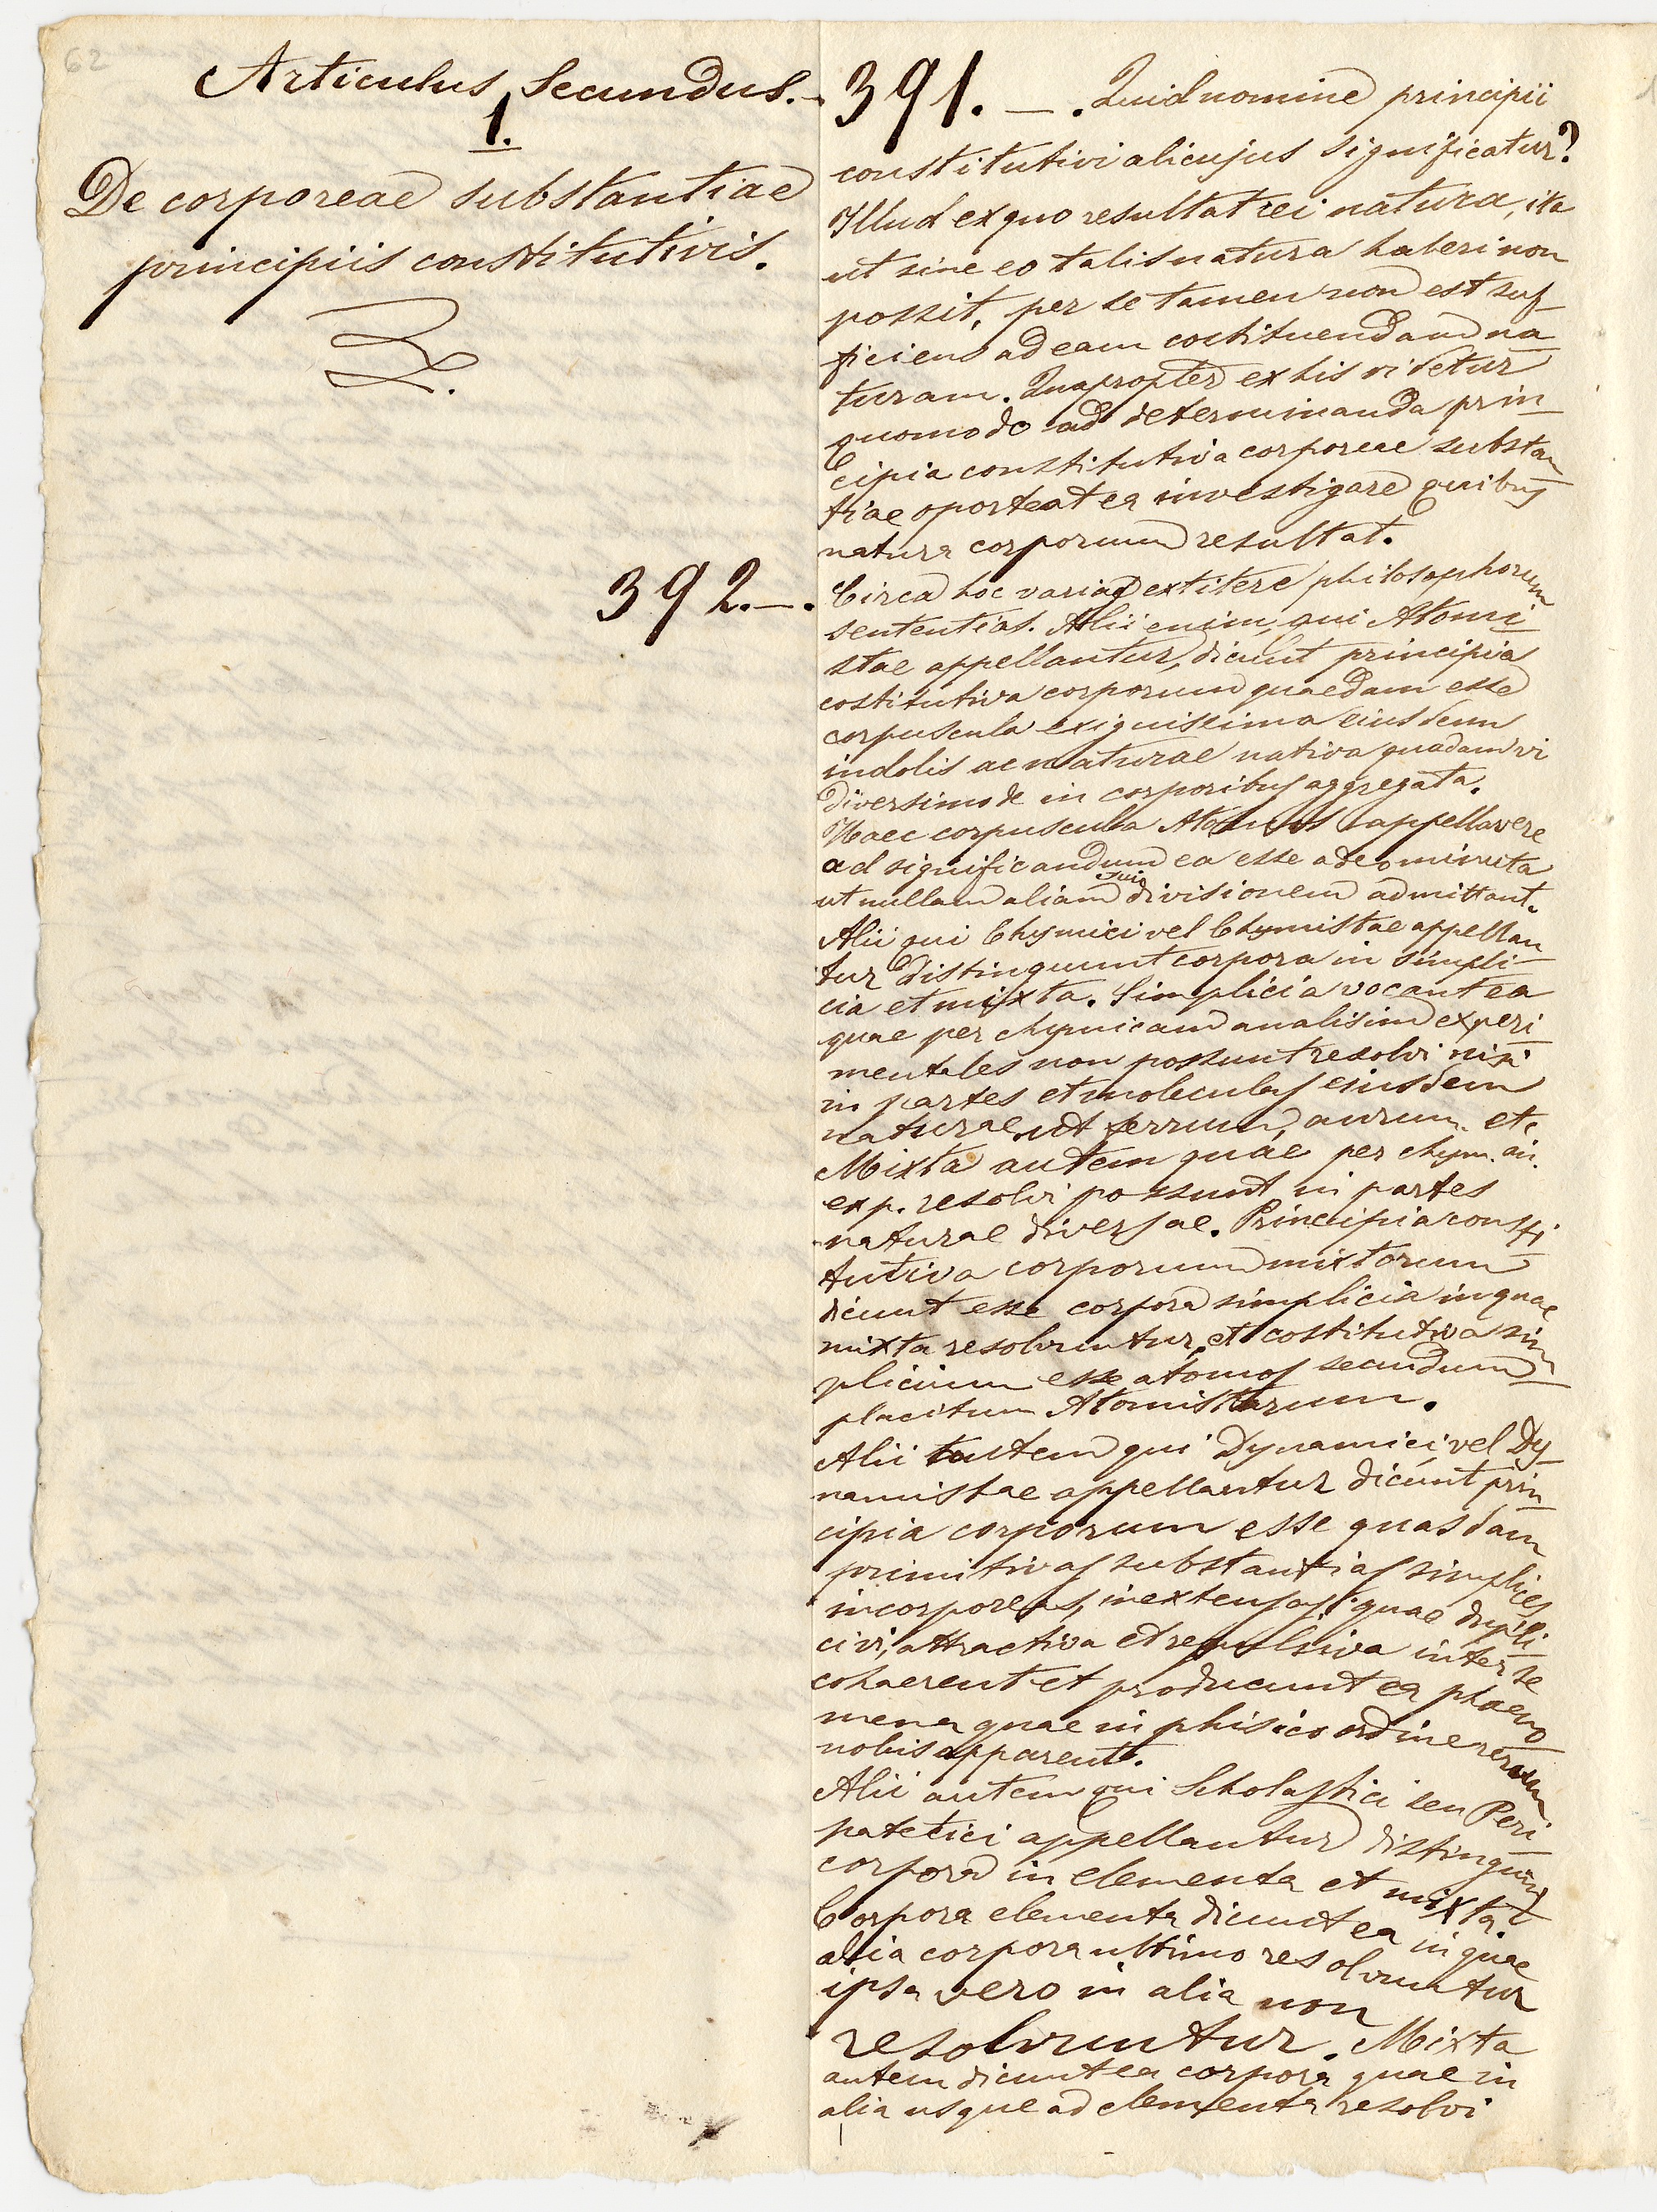 62
Articulus Secundus.-
1.
De corporeae substantiae
principiis constitutivis.
391. - . Quid nomine principii
constitutivi alicujus significatur?
Illud ex quo resultat rei natura, ita
ut sine eo talis natura haberi non
possit, per se tamen non est suf-
ficiens ad eam costituendam na
turam. Quapropter ex his videtur
quomodo ad determinanda prin
cipia constitutiva corporeae substan
tiae oporteat ea investigare quibus
natura corporum resultat.
392.-.
Circa hoc variae extitere philosophorum
sententias. Alii enim, qui Atomi
stae appellantur, dicunt principia
costitutiva corporum quaedam esse
corpuscula exiguissima eiusdem
indolis ac naturae nativa quadam vi
diversimode in corporibus aggregata.
Haec corpuscula Atomos appellavere
ad significandum ea esse adeo minuta
ut nullam aliam sui divisionem admittant.
Alii qui Chymici vel Chymistae appellan
tur distinguunt corpora in simpli-
cia et mixta. Simplicia vocant ea
quae per chymicam analisim experi
mentales non possunt resolvi nisi
in partes et moleculas eiusdem
naturae ut ferrum, aurum. et.
Mixta autem quae per chym. an.
exp. resolvi possunt in partes
naturae diversae. Principia consti
tutiva corporum mixtorum
dicunt esse corpora simplicia in quae
mixta resolvuntur, et costitutiva sim
plicium esse atomos secundum
placitum Atomistarum.
Alii autem qui Dynamici vel Dy-
namistae appellantur dicunt prin
cipia corporum esse quasdam
primitivas substantias simplices
incorporeas, inextensas, quae dupli
ci vi, attractiva et repulsiva inter se
cohaerent et producunt ea phaeno
mena quae in phisico ordine rerum
nobis apparent.
Alii autem qui Scholastici seu Peri
patetici appellantur distinguunt
corpora in elementa et mixta.
Corpora elementa dicunt ea in quae
alia corpora ultimo resolvuntur
ipsa vero in alia non
resolvuntur. Mixta
autem dicunt ea corpora quae in
alia usque ad elementa resolvi